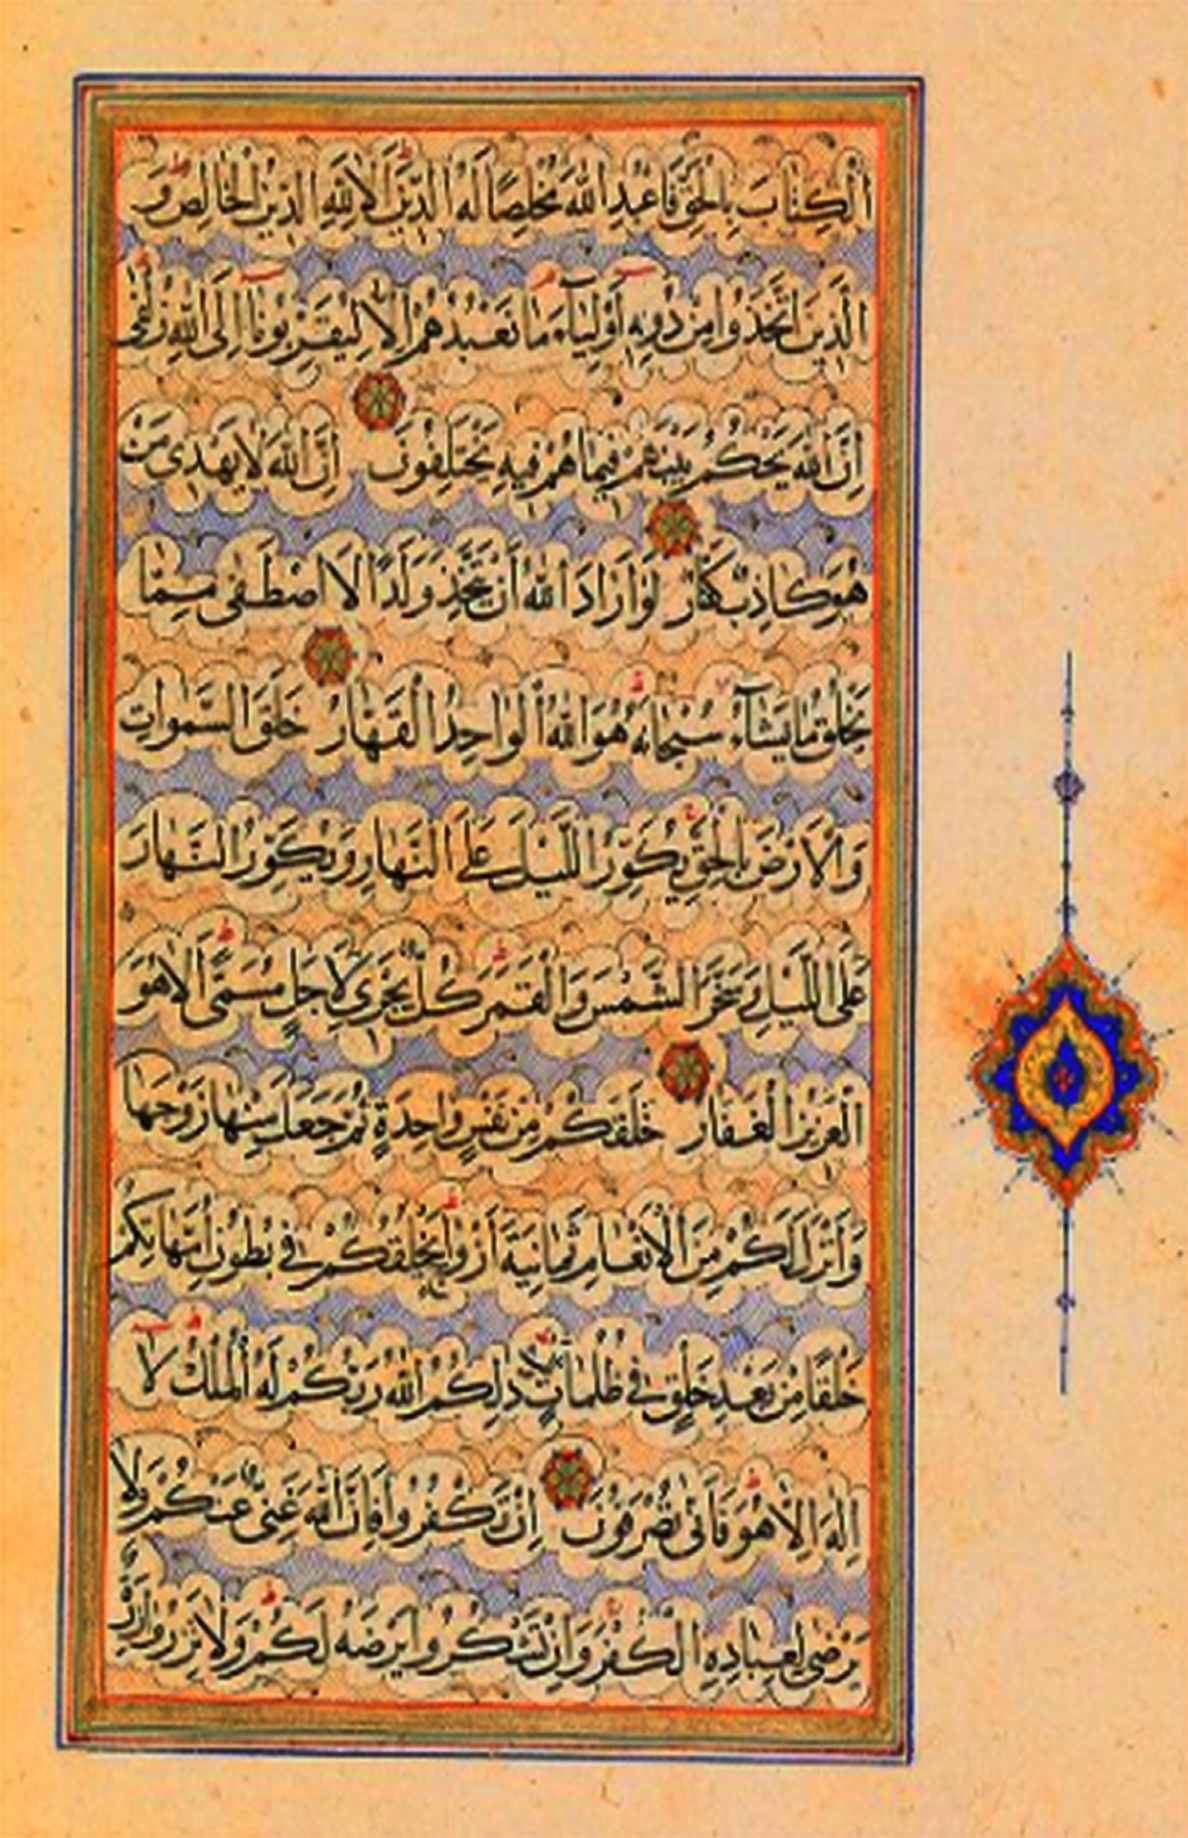 الْكِتَابَ بِالْحَقِّ فَاعْبُدِ اللهَ مُخْلِصًا لَهُ الدِّينَ الَا لِلّٰهِ الدِّينُ الْخَالِصُ وَ
الَّذِينَ اتَّخَذُوا مِنْ دُونِهِ أَوْلِيَاءَ مَا نَعْبُدُهُمْ اِلَّا لِيُقَرِّبُونَا اِلَى اللهِ زُلْفَى
اِنَّ اللهَ يَحْكُمُ بَيْنَهُمْ فِيمَا هُمْ فِيهِ يَخْتَلِفُونَ اِنَّ اللهَ لَا يَهْدِى مَنْ
هُوَ كَاذِبٌ كَفَّارٌ لَوْ اَرَادَ اللهُ اَنْ يَتَّخِذَ وَلَدًا لَاصْطَفَى مِمَّا
يَخْلُقُ مَا يَشَاءُ سُبْحَانَهُ هُوَ اللهُ الْوَاحِدُ الْقَهَّارُ خَلَقَ السَّمٰوَاتِ
وَالْاَرْضَ بِالْحَقِّ يُكَوِّرُ اللَّيْلَ عَلَى النَّهَارِ وَيُكَوِّرُ النَّهَارَ
عَلَى اللَّيْلِ وَسَخَّرَ الشَّمْسَ وَالْقَمَرَ كُلٌّ يَجْرِى لِاَجَلٍ مُسَمًّى اَلَا هُوَ
الْعَزِيزُ الْغَفَّارُ خَلَقَكُمْ مِنْ نَفْسٍ وَاحِدَةٍ ثُمَّ جَعَلَ مِنْهَا زَوْجَهَا
وَاَنْزَلَ لَكُمْ مِنَ الْاَنْعَامِ ثَمَانِيَةَ اَزْوَاجٍ يَخْلُقُكُمْ فِى بُطُونِ اُمَّهَاتِكُمْ
خَلْقًا مِنْ بَعْدِ خَلْقٍ فِى ظُلُمَاتٍ ثَلَاثٍ ذٰلِكُمُ اللهُ رَبُّكُمْ لَهُ الْمُلْكُ لَا
اِلٰهَ اِلَّا هُوَ فَاَنّٰى تُصْرَفُونَ اِنْ تَكْفُرُوا فَاِنَّ اللهَ غَنِىٌّ عَنْكُمْ وَلَا
يَرْضَى لِعِبَادِهِ الْكُفْرَ وَاِنْ تَشْكُرُوا يَرْضَهُ لَكُمْ وَلَا تَزِرُ وَازِرَةٌ